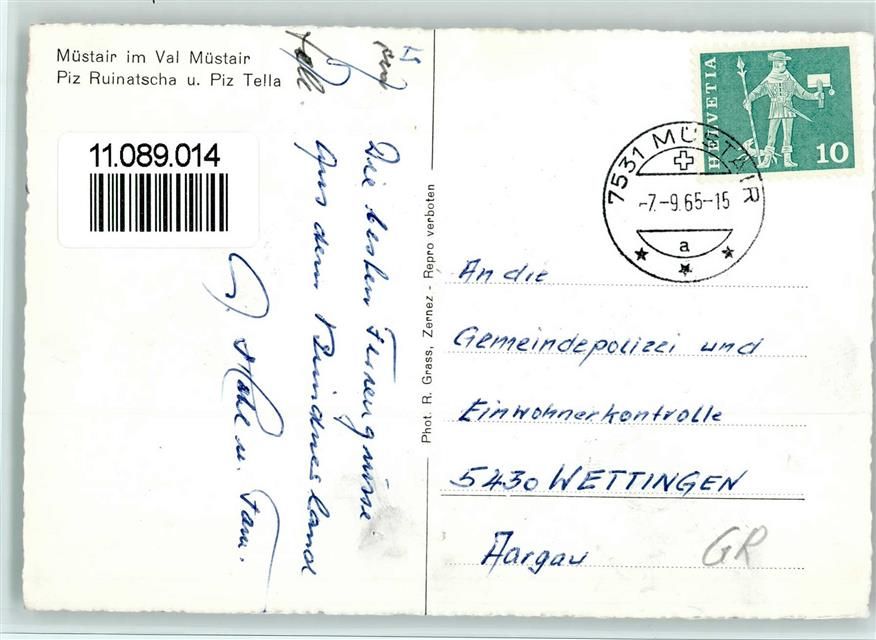 Müstair im Val Müstair
Piz Ruinatscha u. Piz Tella
11.089.014
Die besten Feriengrüsse
Aus dem Bündnerland
Mahl u. Fam.
Phot. R. Grass, Zernez - Repro verboten
HELVETIA
10
7531 MÜSTAIR
-7.-9.65-15
a
An die
Gemeindepolizei und
Einwohnerkontrolle
5430 WETTINGEN
Aargau
GR